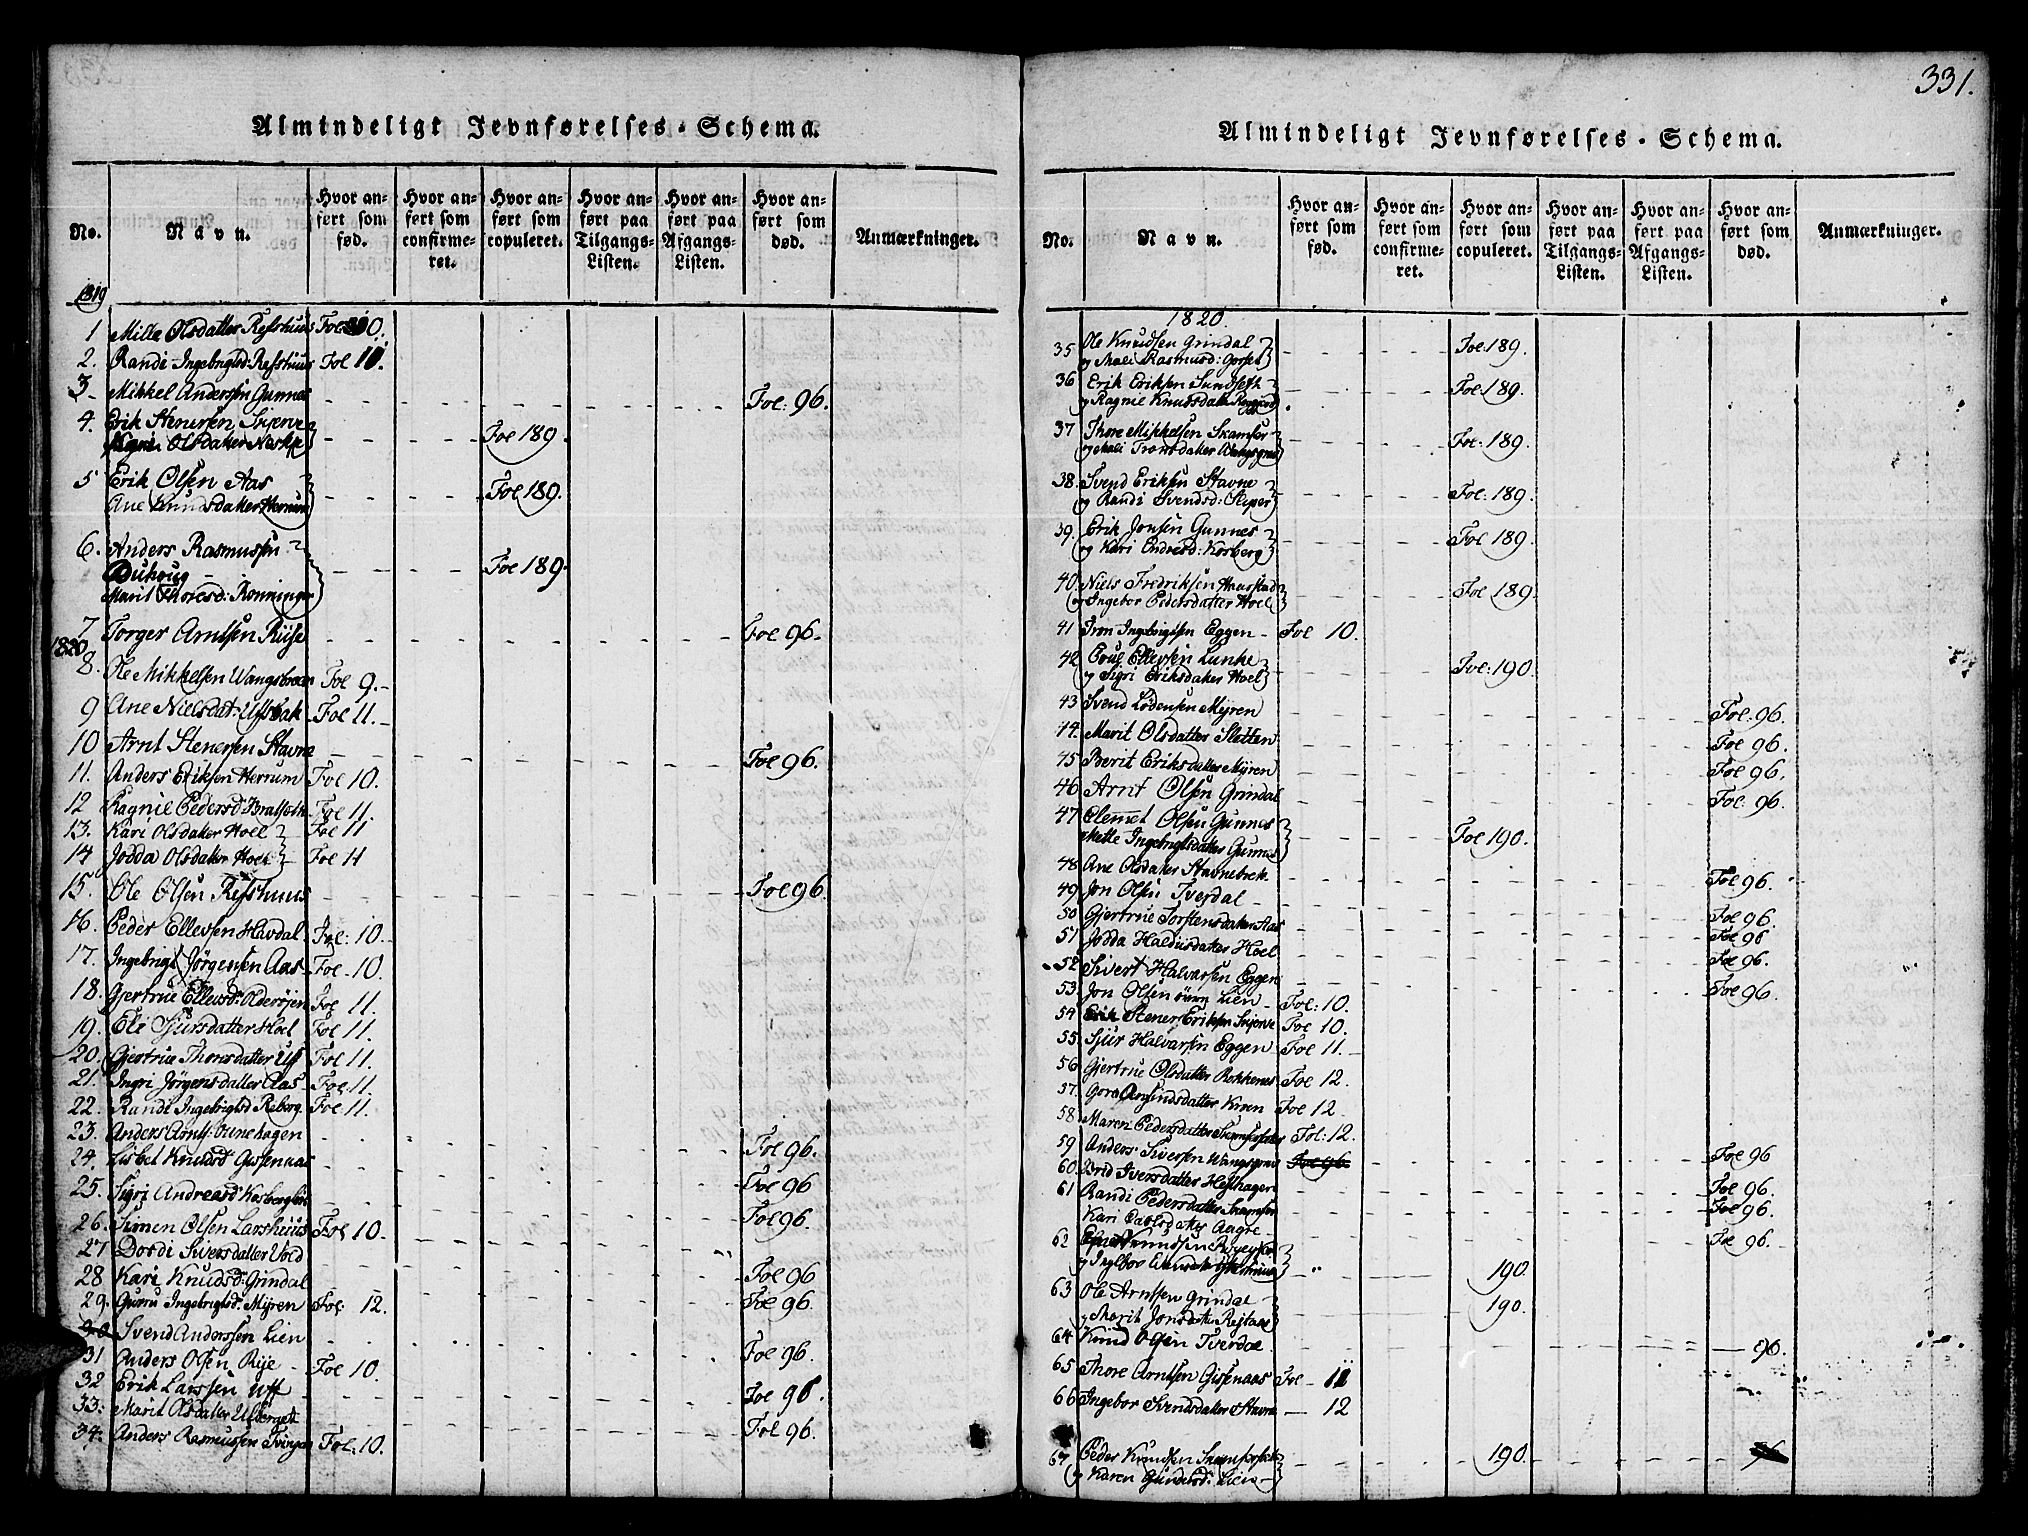 331.
Almindeligt Jevnførelses-Schema.
No.
Navn.
Hvor anført som fød.
Hvor anført som confirmeret.
Hvor anført som copuleret.
Hvor anført paa Tilgangs-Listen.
Hvor anført paa Afgangs-Listen.
Hvor anført som død.
Anmærkninger.
1819
1 Mille Olsdatter Refshuus Fol 10.
2. Randi Ingebrigtsd: Refshuus Fol 11.
3 Mikkel Andersen Gunnes Fol: 96.
4. Erik Stenersen
Olsdatter Fol 189.
5 Erik Olsen Aas
Ane Knudsdatter Herrum Fol 189.
6. Anders Rasmussen
Duhoug Fol 189.
Marit Thoresd: Rønningen
7 Torger Arntsen Riise Fol 96.
1820
8. Ole Mikkelsen Fol 9.
9 Ane Nielsdat: Fol 11.
10 Arnt Stenersen Stavne Fol 96.
11. Anders Eriksen Herrum Fol 10.
12 Ragnil Pedersd: Bratseth Fol 11.
13. Kari Olsdatter Hoel Fol 11
14 Jodda Olsdatter Hoel Fol 11
15. Ole Olsen Refshuus Fol 96.
16. Peder Ellevsen Havdal Fol: 10.
17. Ingebrigt Jørgensen Aas Fol. 10.
18. Gjertrue Ellevsd: Fol 11.
19. Eli Sjursdatter Hoel Fol 11.
20. Gjertrue Thoresdatter Uf Fol 11.
21. Ingri Jørgensdatter Aas Fol: 11.
22. Randi Ingebrigtsd Reberg Fol 11.
23. Anders Arnts: Fol 96.
24. Lisbet Knudsd: Gissenaas Fol 96
25. Sigri Andreasd Fol 96.
26. Simen Olsen Larshuus Fol 10.
27 Dordi Siversdatter Vold Fol 96
28 Kari Knudsd: Grindal Fol 96.
29. Guru Ingebrigtsd: Myren Fol: 12.
30 Svend Anderssen Lien Fol 96.
31 Anders Olsen Rye Fol 10.
32 Erik Larssen Uff Fol 96.
33: Marit Olsdatter Fol 96.
34. Anders Rasmussen Fol: 10.
Almindeligt Jevnførelses-Schema.
No.
Navn.
Hvor anført som fød.
Hvor anført som confirmeret.
Hvor anført som copuleret.
Hvor anført paa Tilgangs-Listen.
Hvor anført paa Afgangs-Listen.
Hvor anført som død.
Anmærkninger.
1820.
35 Ole Knudsen Grindal
og Mali Rasmusd: Fol: 189.
36 Erik Eriksen Sundseth
og Ragnil Knudsdatter Fol: 189.
37 Thore Mikkelsen Skamfer
og Mali Fol: 189.
38. Svend Eriksen Stavne
og Randi Svendsd: Fol: 189.
39. Erik Jonsen Gunnes
og Kari Endresd: Korberg Fol 189.
40. Niels Fredriksen
og Ingebor Pedersdatter Hoel Fol 189.
41 Tron Ingebrigtsen Eggen Fol 10.
42 Poul Ellevsen Lunke
og Sigri Eriksdatter Hoel Fol: 190.
43 Svend Lødensen Myren Fol. 96.
44. Marit Olsdatter Sletten Fol 96.
45 Berit Eriksdatter Myren Fol 96.
46 Arnt Olsen Grindal Fol. 96.
47 Clemmet Olsen Gunnes
Mette Ingebrigtsdatter Gunnes Fol 190.
48. Ane Olsdatter Stavnebrek Fol 96.
49 Jon Olsen Tverdal Fol 96.
50 Gjertrue Torstensdatter Aas Fol 96
51 Jodda Haldusdatter Hoel Fol 96.
52 Sivert Halvarsen Eggen Fol 96.
53. Jon Olsen Lien Fol: 10.
54 Stener Eriksen Fol 10.
55 Sjur Halvarsen Eggen Fol 11.
56 Gjertrue Olsdatter Fol 12.
57. Goro Kroen Fol 12.
58 Maren Pedersdatter Fol: 12.
59 Anders Siversen Fol 96 Fol 96
60. Brid Iversdatter Fol 96.
61 Randi Pedersdatter Skamfer Fol 96.
Kari Aagre Fol 96.
62 Knudsen
og Ingebor 190.
63 Ole Arntsen Grindal
og Marit Jonsdatter 190.
64 Knud Olsen Tverdal 96.
65 Thore Arntsen Gisenaas Fol 11
66 Ingebor Svendsdatter Stavne 12
67 Peder Knudsen
og Karen Gundersd: Lien 190. 96